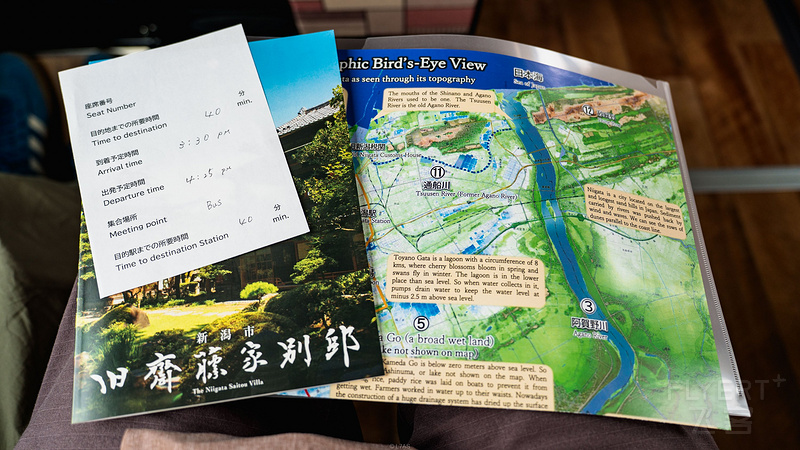 座席番号
Seat Number
目的地までの所要時間 40 分
Time to destination min.
到着予定時間 3:30 PM
Arrival time
出発予定時間 4:25 PM
Departure time
集合場所 Bus
Meeting point
目的駅までの所要時間 40 分
Time to destination Station min.
新潟市
旧齋藤家別邸
The Niigata Saitou Villa
phic Bird's-Eye View
ta as seen through its topography
日本海
Sea of Japan
The mouths of the Shinano and Agano
Rivers used to be one. The Tsuusen
River is the old Agano River.
新潟税関
Niigata Customs House
⑪
通船川
Tsuusen River (Former Agano River)
潟駅
ta Station
⑫
Niigata is a city located on the largest
and longest sand hills in Japan. Sediment
carried by rivers was pushed back by
wind and waves. We can see the rows of
dunes parallel to the coast line.
Toyano Gata is a lagoon with a circumference of 8
kms, where cherry blossoms bloom in spring and
swans fly in winter. The lagoon is in the lower
place than sea level. So when water collects in it,
pumps drain water to keep the water level at
minus 2.5 m above sea level.
③
阿賀野川
Agano River
⑤
a Go (a broad wet land)
ke not shown on map)
Kameda Go is below zero meters above sea level. So
ashinuma, or lake not shown on the map. When
rice, paddy rice was laid on boats to prevent it from
getting wet. Farmers worked in water up to their waists. Nowadays
the construction of a huge drainage system has dried up the surface
FLYERT+